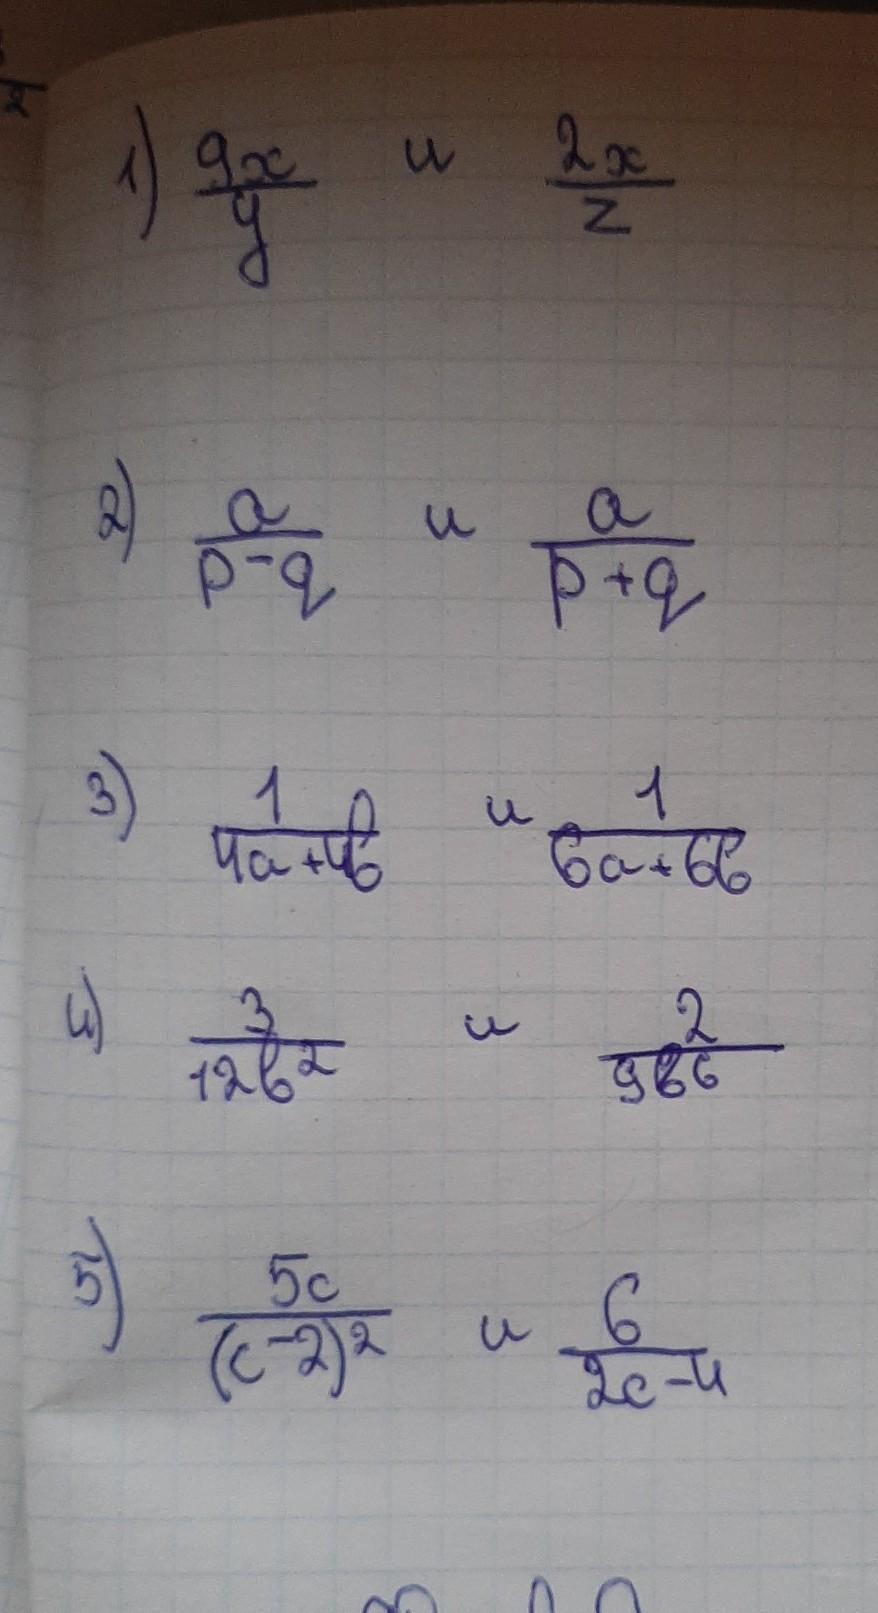 1) 9x/y и 2x/z
2) a/(p-q) и a/(p+q)
3) 1/(4a+4b) и 1/(6a+6b)
4) 3/(12b²) и 2/(9b⁶)
5) 5c/(c-2)² и 6/(2c-4)